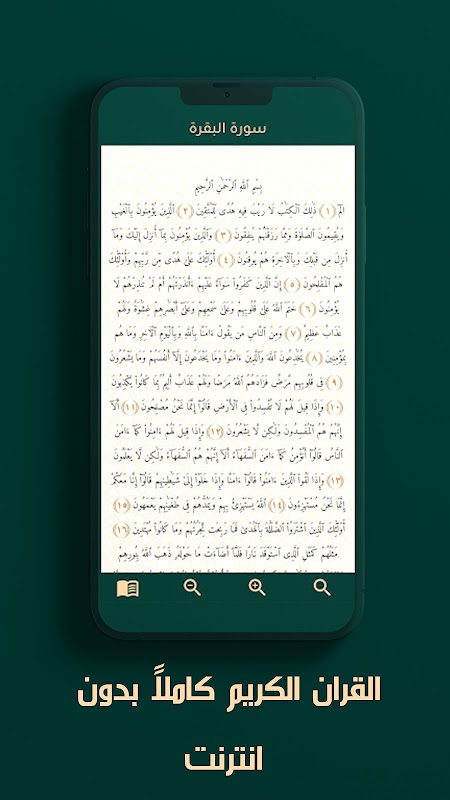 سورة البقرة
بِسْمِ ٱللَّهِ ٱلرَّحْمَٰنِ ٱلرَّحِيمِ
الٓمٓ ﴿١﴾ ذَٰلِكَ ٱلْكِتَٰبُ لَا رَيْبَ فِيهِ هُدًى لِّلْمُتَّقِينَ ﴿٢﴾ ٱلَّذِينَ يُؤْمِنُونَ بِٱلْغَيْبِ
وَيُقِيمُونَ ٱلصَّلَوٰةَ وَمِمَّا رَزَقْنَٰهُمْ يُنفِقُونَ ﴿٣﴾ وَٱلَّذِينَ يُؤْمِنُونَ بِمَآ أُنزِلَ إِلَيْكَ وَمَآ
أُنزِلَ مِن قَبْلِكَ وَبِٱلْءَاخِرَةِ هُمْ يُوقِنُونَ ﴿٤﴾ أُو۟لَٰٓئِكَ عَلَىٰ هُدًى مِّن رَّبِّهِمْ وَأُو۟لَٰٓئِكَ
هُمُ ٱلْمُفْلِحُونَ ﴿٥﴾ إِنَّ ٱلَّذِينَ كَفَرُوا۟ سَوَآءٌ عَلَيْهِمْ ءَأَنذَرْتَهُمْ أَمْ لَمْ تُنذِرْهُمْ لَا
يُؤْمِنُونَ ﴿٦﴾ خَتَمَ ٱللَّهُ عَلَىٰ قُلُوبِهِمْ وَعَلَىٰ سَمْعِهِمْ وَعَلَىٰٓ أَبْصَٰرِهِمْ غِشَٰوَةٌ وَلَهُمْ
عَذَابٌ عَظِيمٌ ﴿٧﴾ وَمِنَ ٱلنَّاسِ مَن يَقُولُ ءَامَنَّا بِٱللَّهِ وَبِٱلْيَوْمِ ٱلْءَاخِرِ وَمَا هُم
بِمُؤْمِنِينَ ﴿٨﴾ يُخَٰدِعُونَ ٱللَّهَ وَٱلَّذِينَ ءَامَنُوا۟ وَمَا يَخْدَعُونَ إِلَّآ أَنفُسَهُمْ وَمَا يَشْعُرُونَ
﴿٩﴾ فِى قُلُوبِهِم مَّرَضٌ فَزَادَهُمُ ٱللَّهُ مَرَضًا وَلَهُمْ عَذَابٌ أَلِيمٌۢ بِمَا كَانُوا۟ يَكْذِبُونَ
﴿١٠﴾ وَإِذَا قِيلَ لَهُمْ لَا تُفْسِدُوا۟ فِى ٱلْأَرْضِ قَالُوٓا۟ إِنَّمَا نَحْنُ مُصْلِحُونَ ﴿١١﴾ أَلَآ
إِنَّهُمْ هُمُ ٱلْمُفْسِدُونَ وَلَٰكِن لَّا يَشْعُرُونَ ﴿١٢﴾ وَإِذَا قِيلَ لَهُمْ ءَامِنُوا۟ كَمَآ ءَامَنَ
ٱلنَّاسُ قَالُوٓا۟ أَنُؤْمِنُ كَمَآ ءَامَنَ ٱلسُّفَهَآءُ أَلَآ إِنَّهُمْ هُمُ ٱلسُّفَهَآءُ وَلَٰكِن لَّا يَعْلَمُونَ
﴿١٣﴾ وَإِذَا لَقُوا۟ ٱلَّذِينَ ءَامَنُوا۟ قَالُوٓا۟ ءَامَنَّا وَإِذَا خَلَوْا۟ إِلَىٰ شَيَٰطِينِهِمْ قَالُوٓا۟ إِنَّا مَعَكُمْ
إِنَّمَا نَحْنُ مُسْتَهْزِءُونَ ﴿١٤﴾ ٱللَّهُ يَسْتَهْزِئُ بِهِمْ وَيَمُدُّهُمْ فِى طُغْيَٰنِهِمْ يَعْمَهُونَ ﴿١٥﴾
أُو۟لَٰٓئِكَ ٱلَّذِينَ ٱشْتَرَوُا۟ ٱلضَّلَٰلَةَ بِٱلْهُدَىٰ فَمَا رَبِحَت تِّجَٰرَتُهُمْ وَمَا كَانُوا۟ مُهْتَدِينَ ﴿١٦﴾
مَثَلُهُمْ كَمَثَلِ ٱلَّذِى ٱسْتَوْقَدَ نَارًا فَلَمَّآ أَضَآءَتْ مَا حَوْلَهُۥ ذَهَبَ ٱللَّهُ بِنُورِهِمْ
القران الكريم كاملاً بدون
انترنت